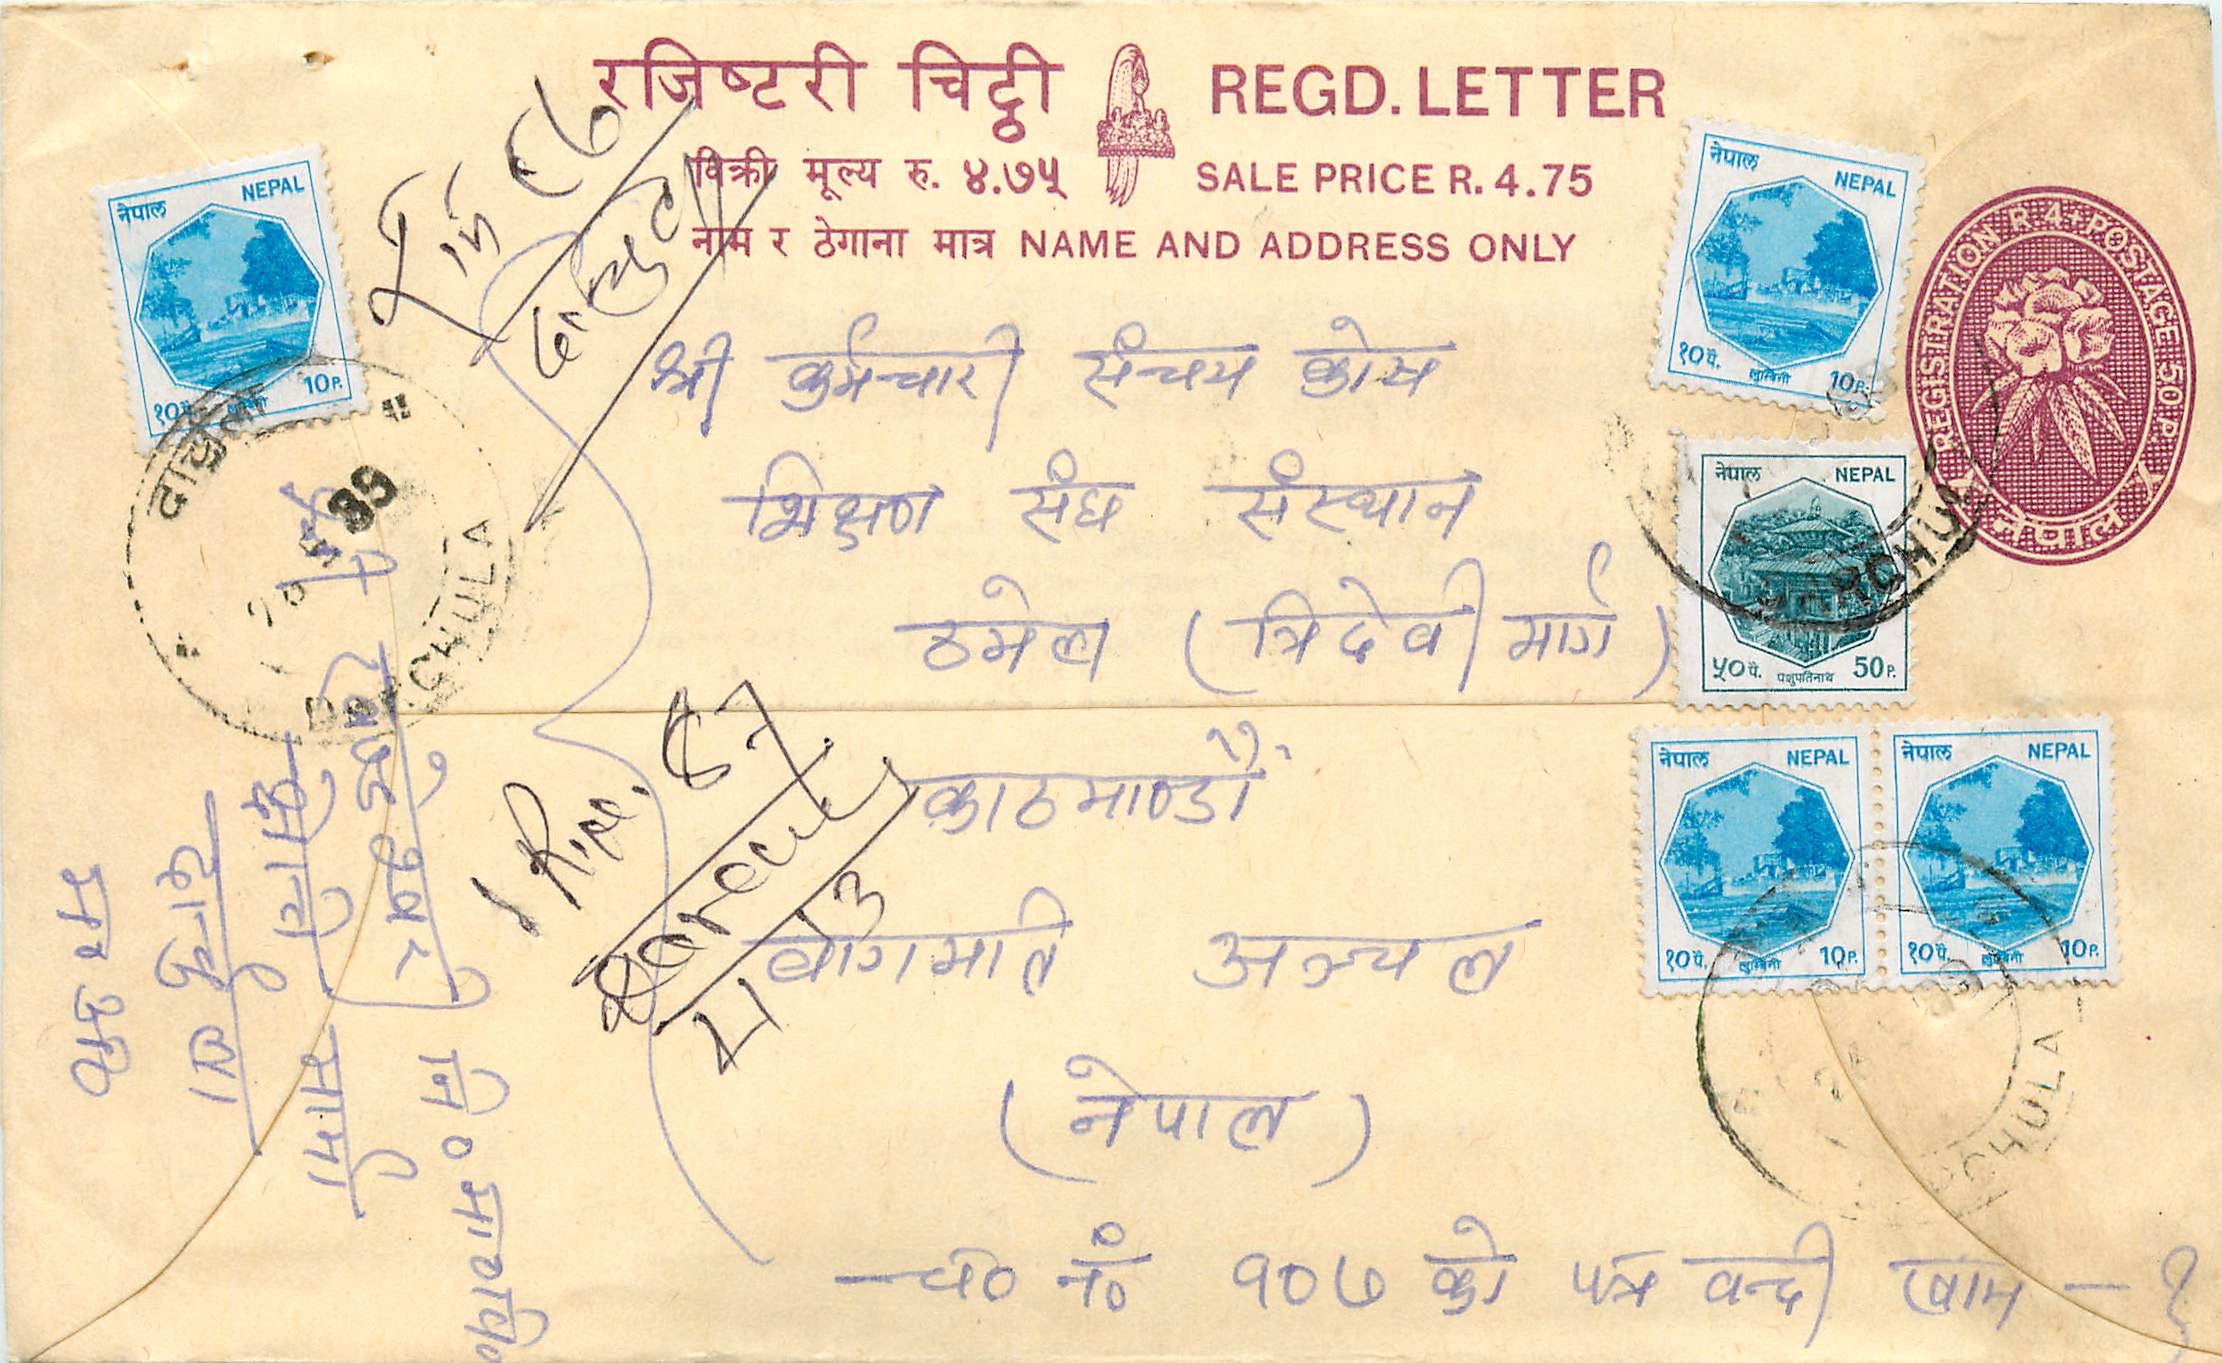 रजिष्टरी चिट्ठी REGD. LETTER
विक्री मूल्य रु. ४.७५ SALE PRICE R. 4.75
नाम र ठेगाना मात्र NAME AND ADDRESS ONLY
नेपाल NEPAL
१० पै. लुम्बिनी 10 P.
नेपाल NEPAL
१० पै. लुम्बिनी 10 P.
REGISTRATION R. 4 + POSTAGE 50 P.
नेपाल
श्री कर्मचारी संचय कोष
शिक्षण संघ संस्थान
ठमेल (त्रिदेवी मार्ग)
काठमाण्डौं
बागमति अञ्चल
(नेपाल)
च० नं० १०७ को पत्र वन्दी खाम — १
नेपाल NEPAL
५० पै. पशुपतिनाथ 50 P.
नेपाल NEPAL
१० पै. लुम्बिनी 10 P.
नेपाल NEPAL
१० पै. लुम्बिनी 10 P.
दार्चुला
89
CHULA
RCHU
RCHULA
श्री
नि० मा० वि०
दार्चुला